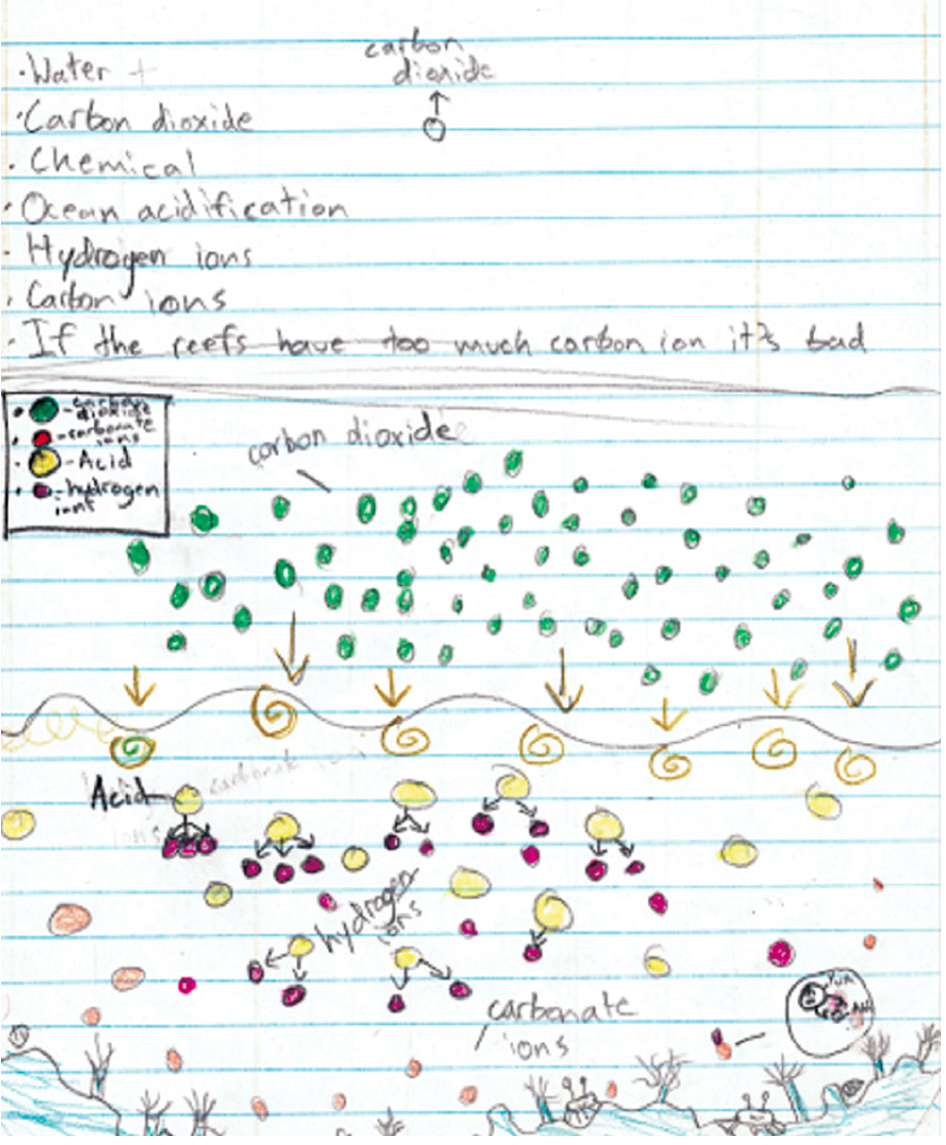 ·Water +
carbon
dioxide
·Carbon dioxide
·Chemical
·Ocean acidification
·Hydrogen ions
·Carbon ions
·If the reefs have too much carbon ion it's bad
·-carbon dioxide
·-carbonate ions
·-Acid
·-hydrogen
carbon dioxide
Acid
carbonate
ions
hydrogen
ions
carbonate
ions